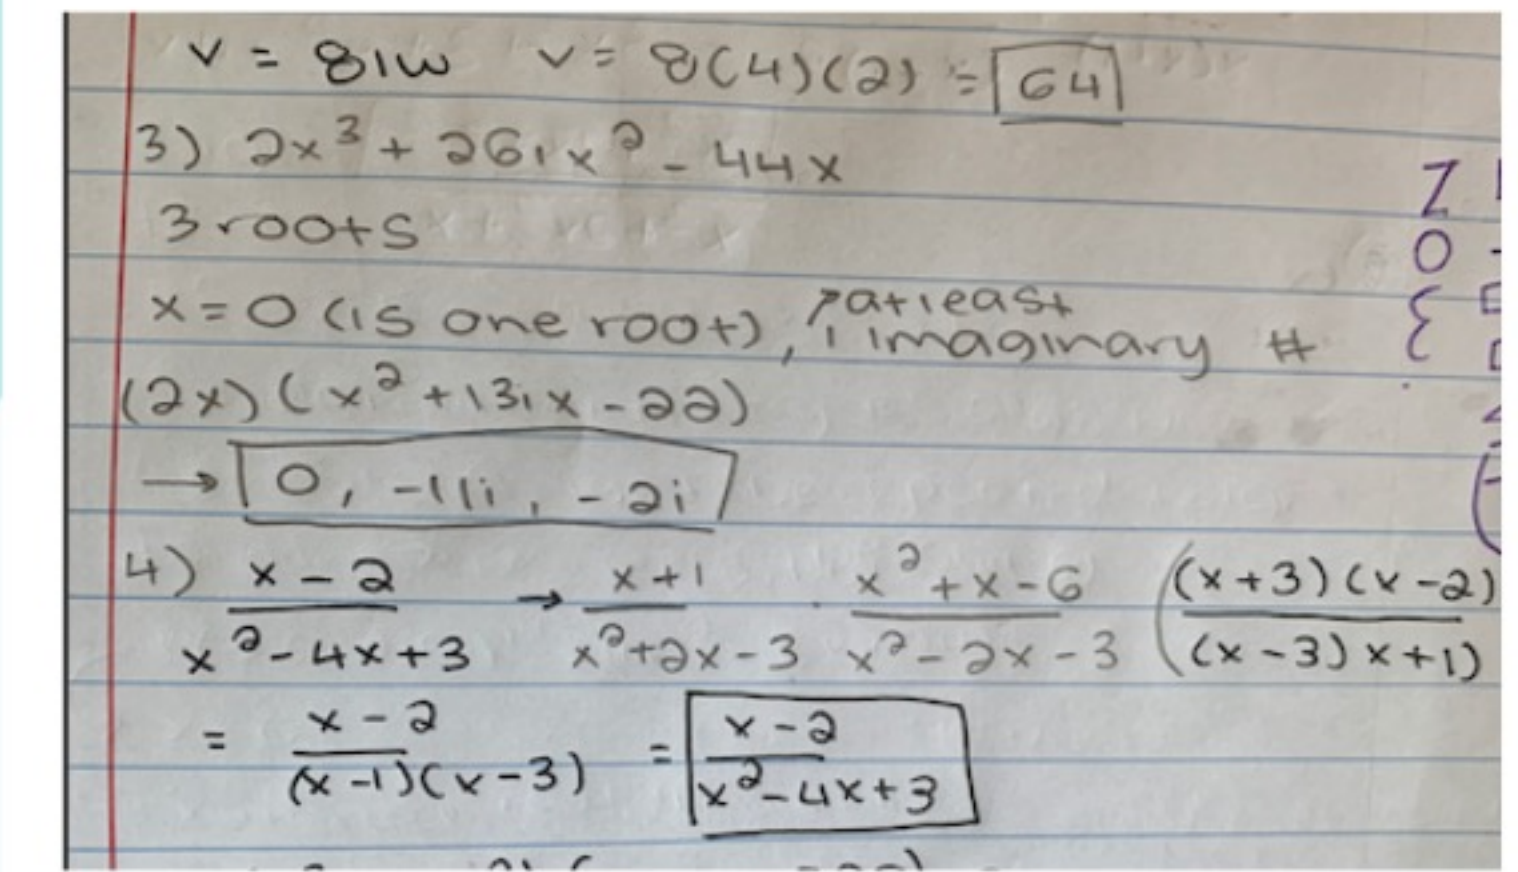 v = 8lw v = 8(4)(2) = 64
3) 2x³ + 26ix² - 44x
3 roots
x = 0 (is one root), ↗ at least
1 imaginary #
(2x)(x² + 13ix - 22)
→ 0, -11i, -2i
4) x - 2 / x² - 4x + 3 → x + 1 / x² + 2x - 3 · x² + x - 6 / x² - 2x - 3 ( (x + 3)(x - 2) / (x - 3) x + 1)
= x - 2 / (x - 1)(x - 3) = x - 2 / x² - 4x + 3
Z
O